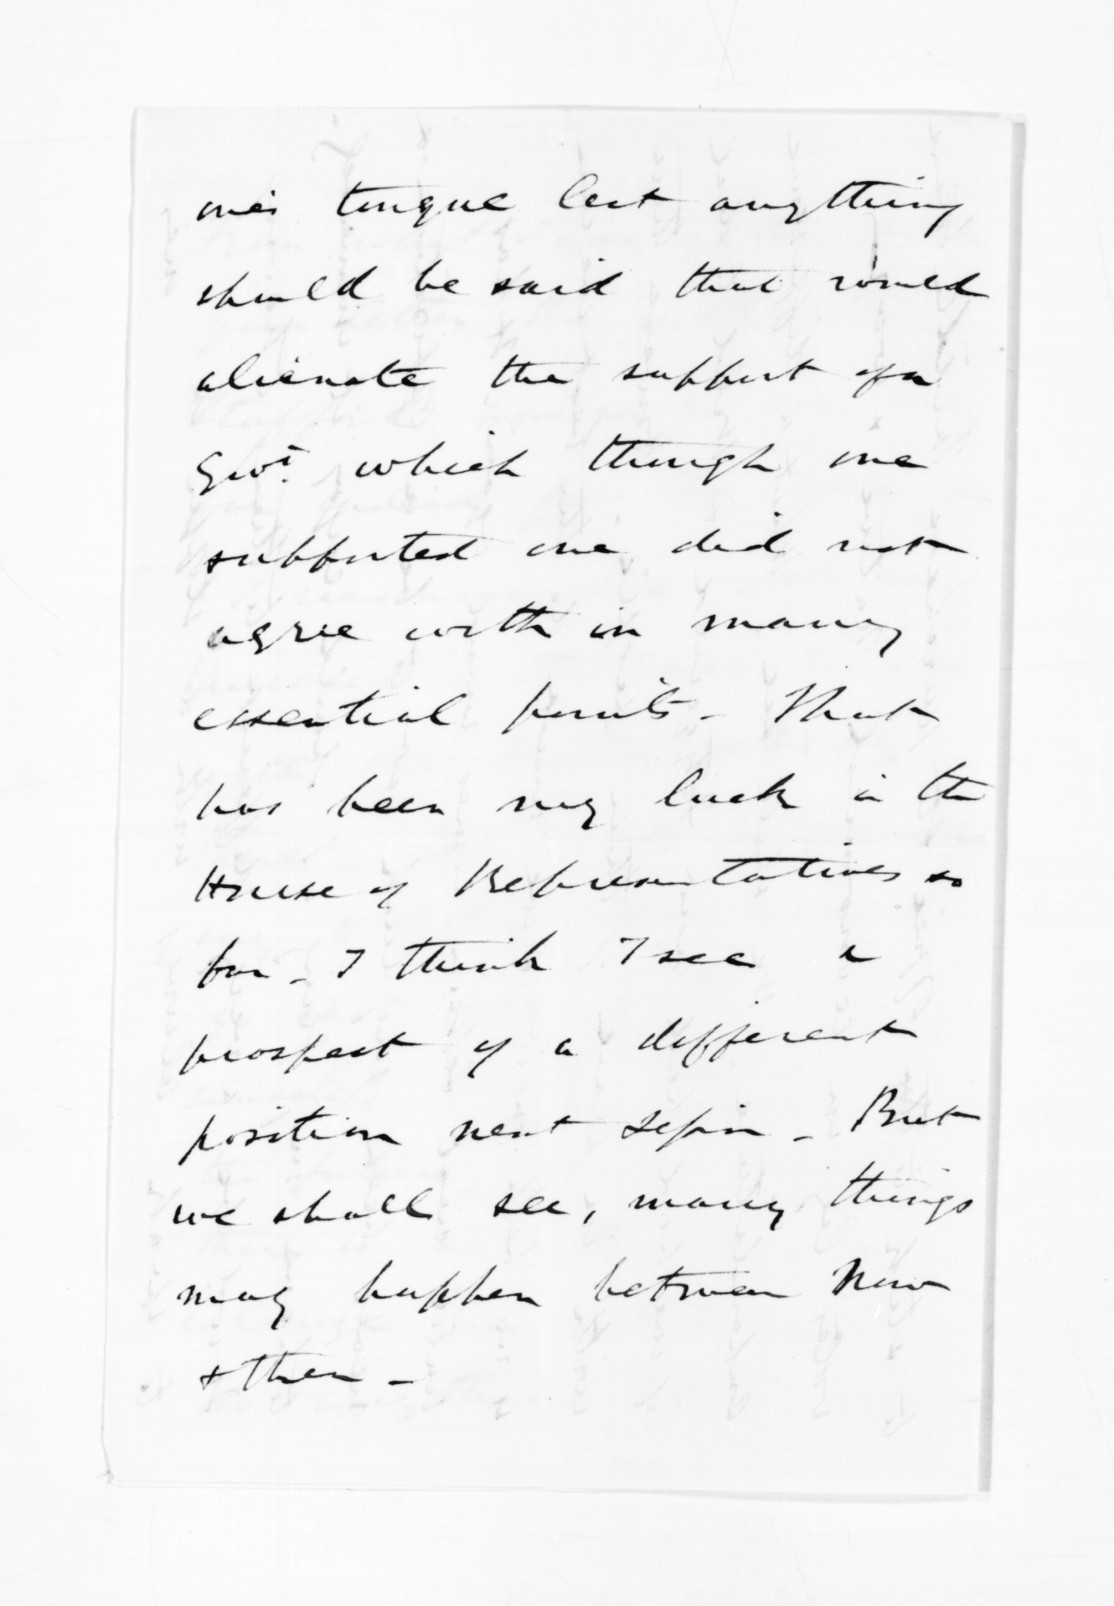 one's tongue lest anything
should be said that would
alienate the support of a
Govt. which though one
supported one did not
agree with in many
essential points - That
has been my luck in the
House of Representatives so
far - I think I see a
prospect of a different
position next Session - But
we shall see, many things
may happen between now
& then -